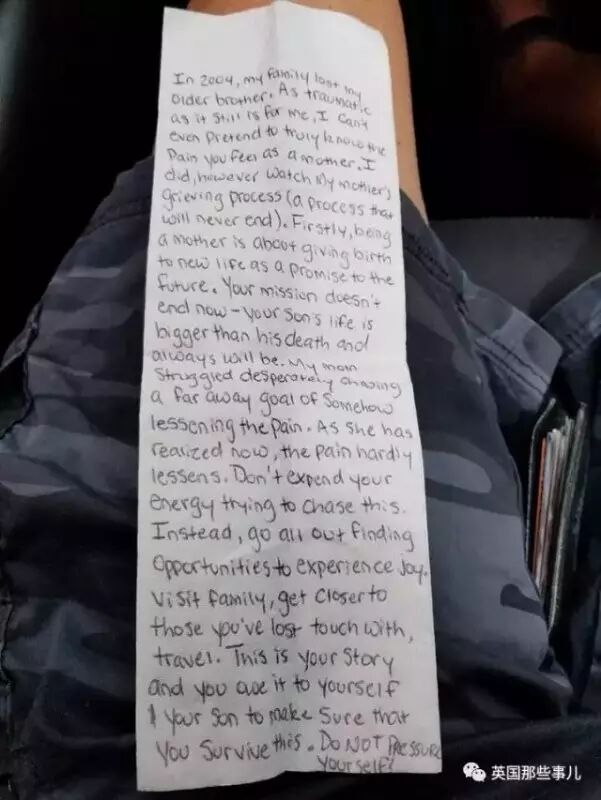 In 2004, my family lost my
older brother. As traumatic
as it still is for me, I can't
even pretend to truly know the
pain you feel as a mother. I
did, however watch my mother's
grieving process (a process that
will never end). Firstly, being
a mother is about giving birth
to new life as a promise to the
future. Your mission doesn't
end now - your son's life is
bigger than his death and
always will be. My mom
struggled desperately chasing
a far away goal of somehow
lessening the pain. As she has
realized now, the pain hardly
lessens. Don't expend your
energy trying to chase this.
Instead, go all out finding
opportunities to experience joy.
Visit family, get closer to
those you've lost touch with,
travel. This is your story
and you owe it to yourself
& your son to make sure that
you survive this. DO NOT PRESSURE
yourself!
英国那些事儿